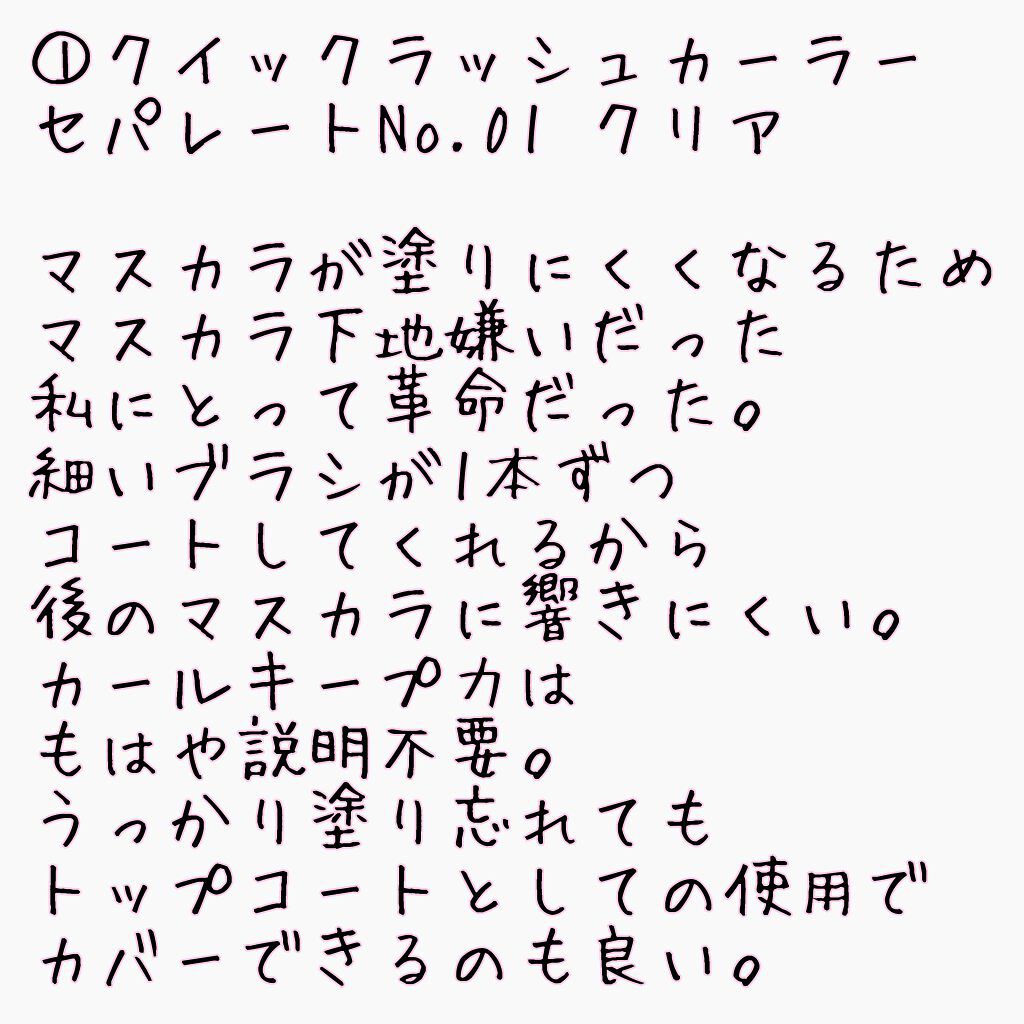 ①クイックラッシュカーラー
セパレートNo.01 クリア
マスカラが塗りにくくなるため
マスカラ下地嫌いだった
私にとって革命だった。
細いブラシが1本ずつ
コートしてくれるから
後のマスカラに響きにくい。
カールキープ力は
もはや説明不要。
うっかり塗り忘れても
トップコートとしての使用で
カバーできるのも良い。